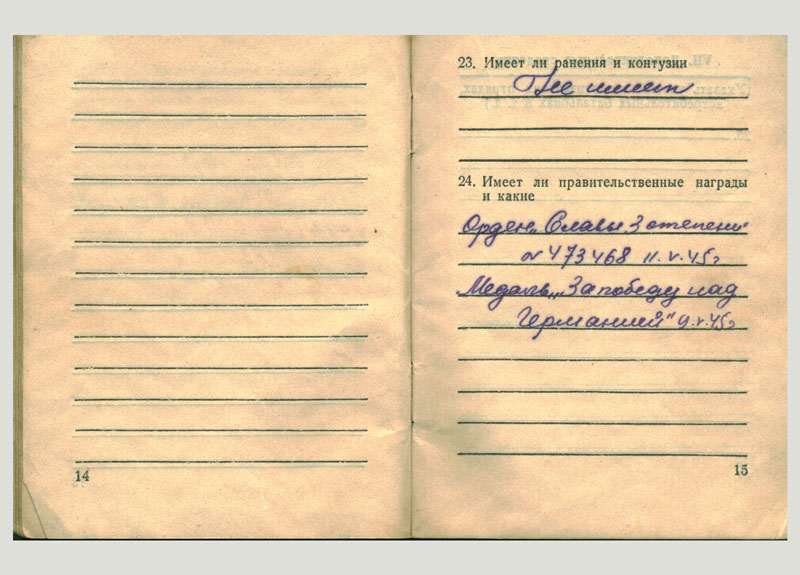 23. Имеет ли ранения и контузии
Не имеет
24. Имеет ли правительственные награды
и какие
Орден „Славы 3 степени"
№ 473468 11.V.45г
Медаль „За победу над
Германией" 9.V.45г
14
15